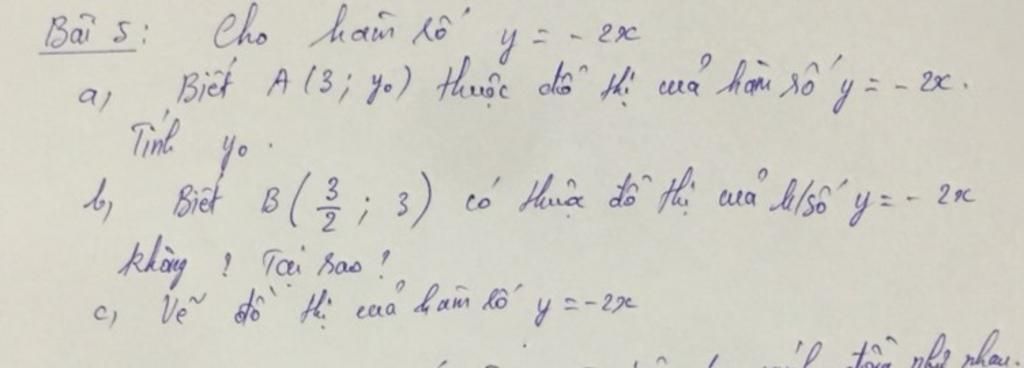 Bài 5: Cho hàm số y = - 2x
a, Biết A (3 ; y₀) thuộc đồ thị của hàm số y = - 2x.
Tính y₀.
b, Biết B ( 3/2 ; 3 ) có thuộc đồ thị của h/số y = - 2x
không ? Tại sao ?
c, Vẽ đồ thị của hàm số y = -2x
như nhau.